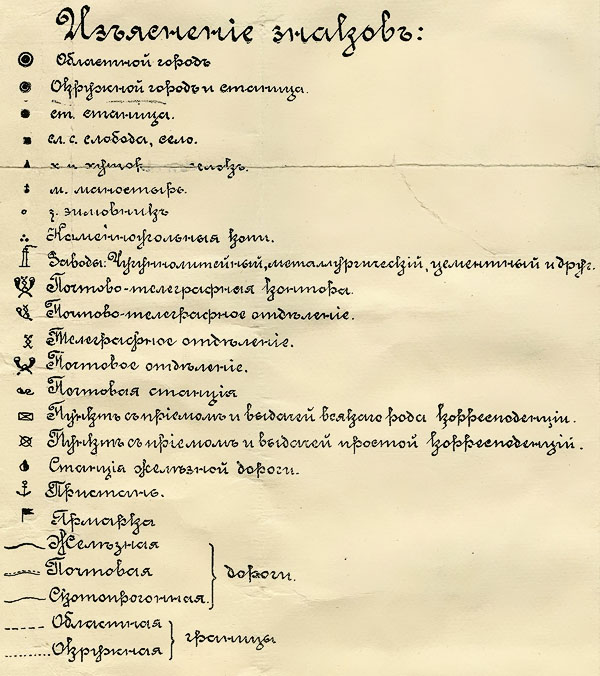 Изъясненіе знаковъ:
Областной городъ
Окружной городъ и станица.
ст. станица.
сл. с. слобода, село.
х. и хуторъ
м. монастырь.
з. зимовникъ
Каменноугольныя копи.
Заводы: Чугуннолитейный, металлургическій, цементный и друг.
Почтово-телеграфная контора.
Почтово-телеграфное отдѣленіе.
Телеграфное отдѣленіе.
Почтовое отдѣленіе.
Почтовая станція
Пунктъ съ пріемомъ и выдачей всякаго рода корреспонденціи.
Пунктъ съ пріемомъ и выдачей простой корреспонденцій.
Станція желѣзной дороги.
Пристань.
Ярмарка
Желѣзная
Почтовая
Скотопрогонная.
дороги.
Областная
Окружная
границы